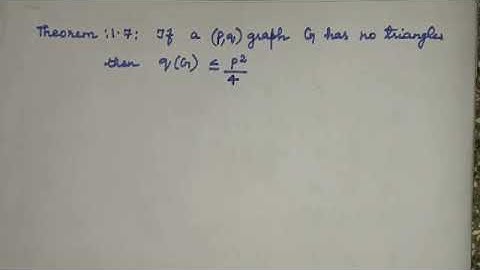 Theorem :1.7: If a (p,q) graph G has no triangles
then q(G) ≤ p²/4